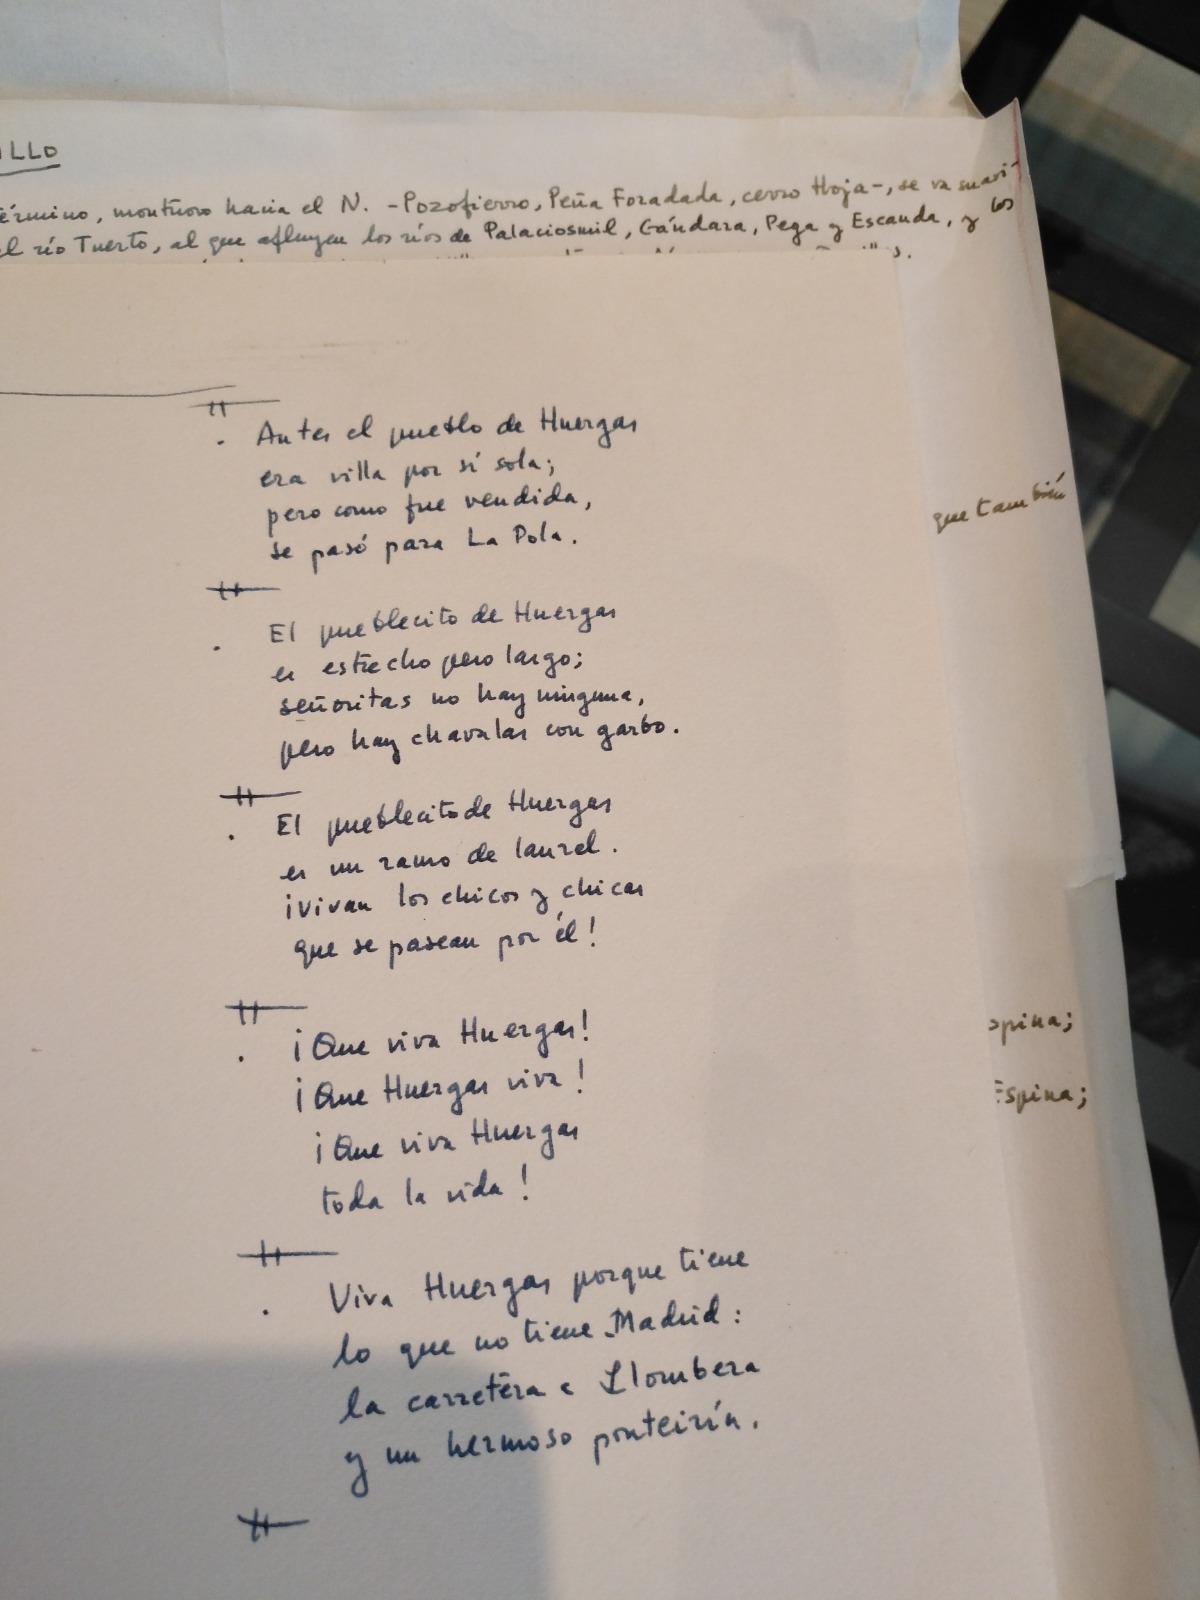 ILLO
término, montuoso hacia el N. -Pozofierro, Peña Foradada, cerro Hoja-, se va suavi-
el río Tuerto, al que afluyen los ríos de Palaciosmil, Gándara, Pega y Escanda, y los
que también
Antes el pueblo de Huergas
era villa por sí sola;
pero como fue vendida,
se pasó para La Pola.
El pueblecito de Huergas
es estrecho pero largo;
señoritas no hay ninguna,
pero hay chavalas con garbo.
El pueblecito de Huergas
es un ramo de laurel.
¡Vivan los chicos y chicas
que se pasean por él!
¡Que viva Huergas!
¡Que Huergas viva!
¡Que viva Huergas
toda la vida!
spina;
Espina;
Viva Huergas porque tiene
lo que no tiene Madrid:
la carretera a Llombera
y un hermoso